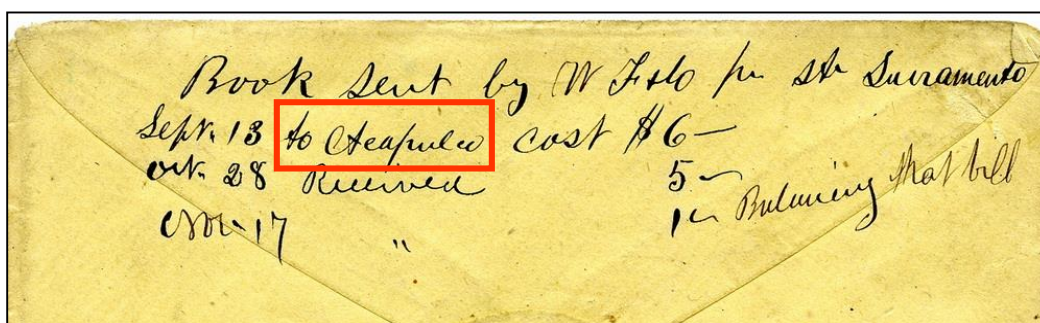 Book sent by W F&Co pr Str Sacramento
Sept. 13 to Acapulco cost $6–
Oct. 28 Received 5–
Nov. 17 " 1– Balancing that bill